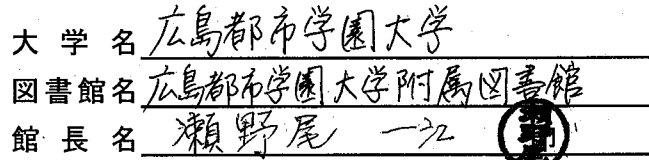 大学名 広島都市学園大学
図書館名 広島都市学園大学附属図書館
館長名 瀬野尾 一江